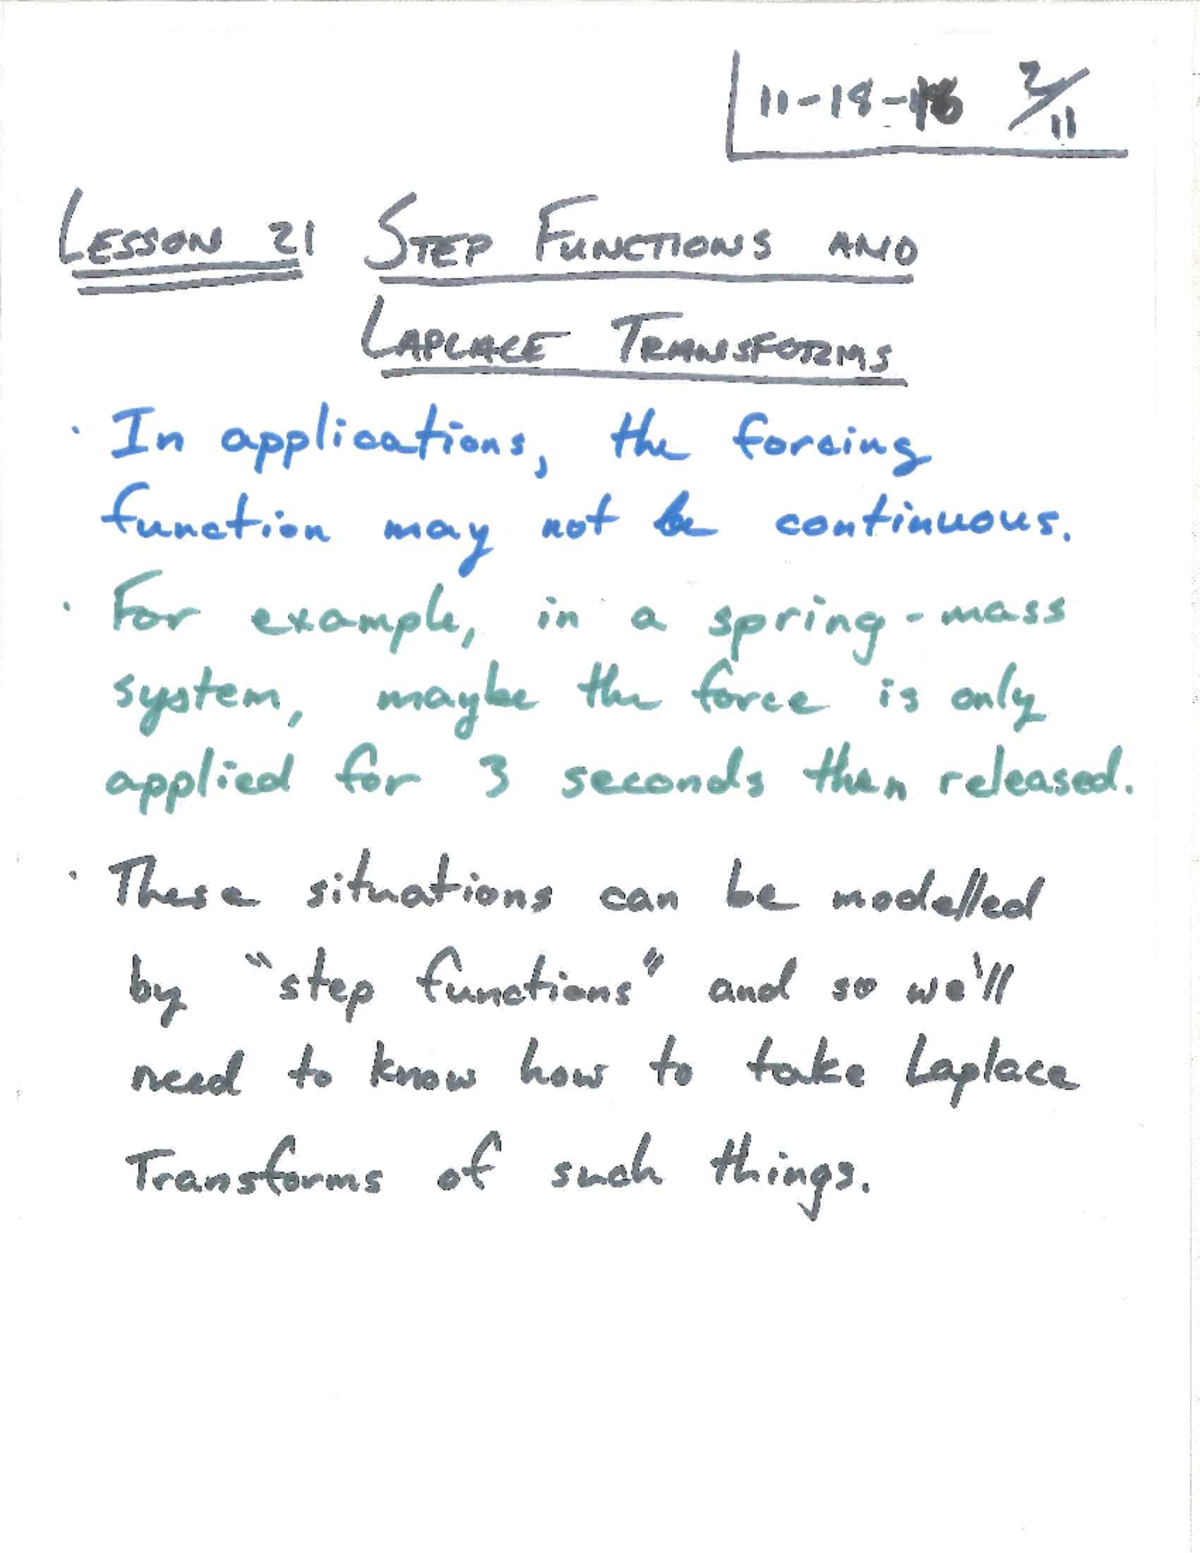 11-18-18 2/11
LESSON 21 STEP FUNCTIONS AND
LAPLACE TRANSFORMS
· In applications, the forcing
function may not be continuous.
· For example, in a spring-mass
system, maybe the force is only
applied for 3 seconds then released.
· These situations can be modelled
by "step functions" and so we'll
need to know how to take Laplace
Transforms of such things.